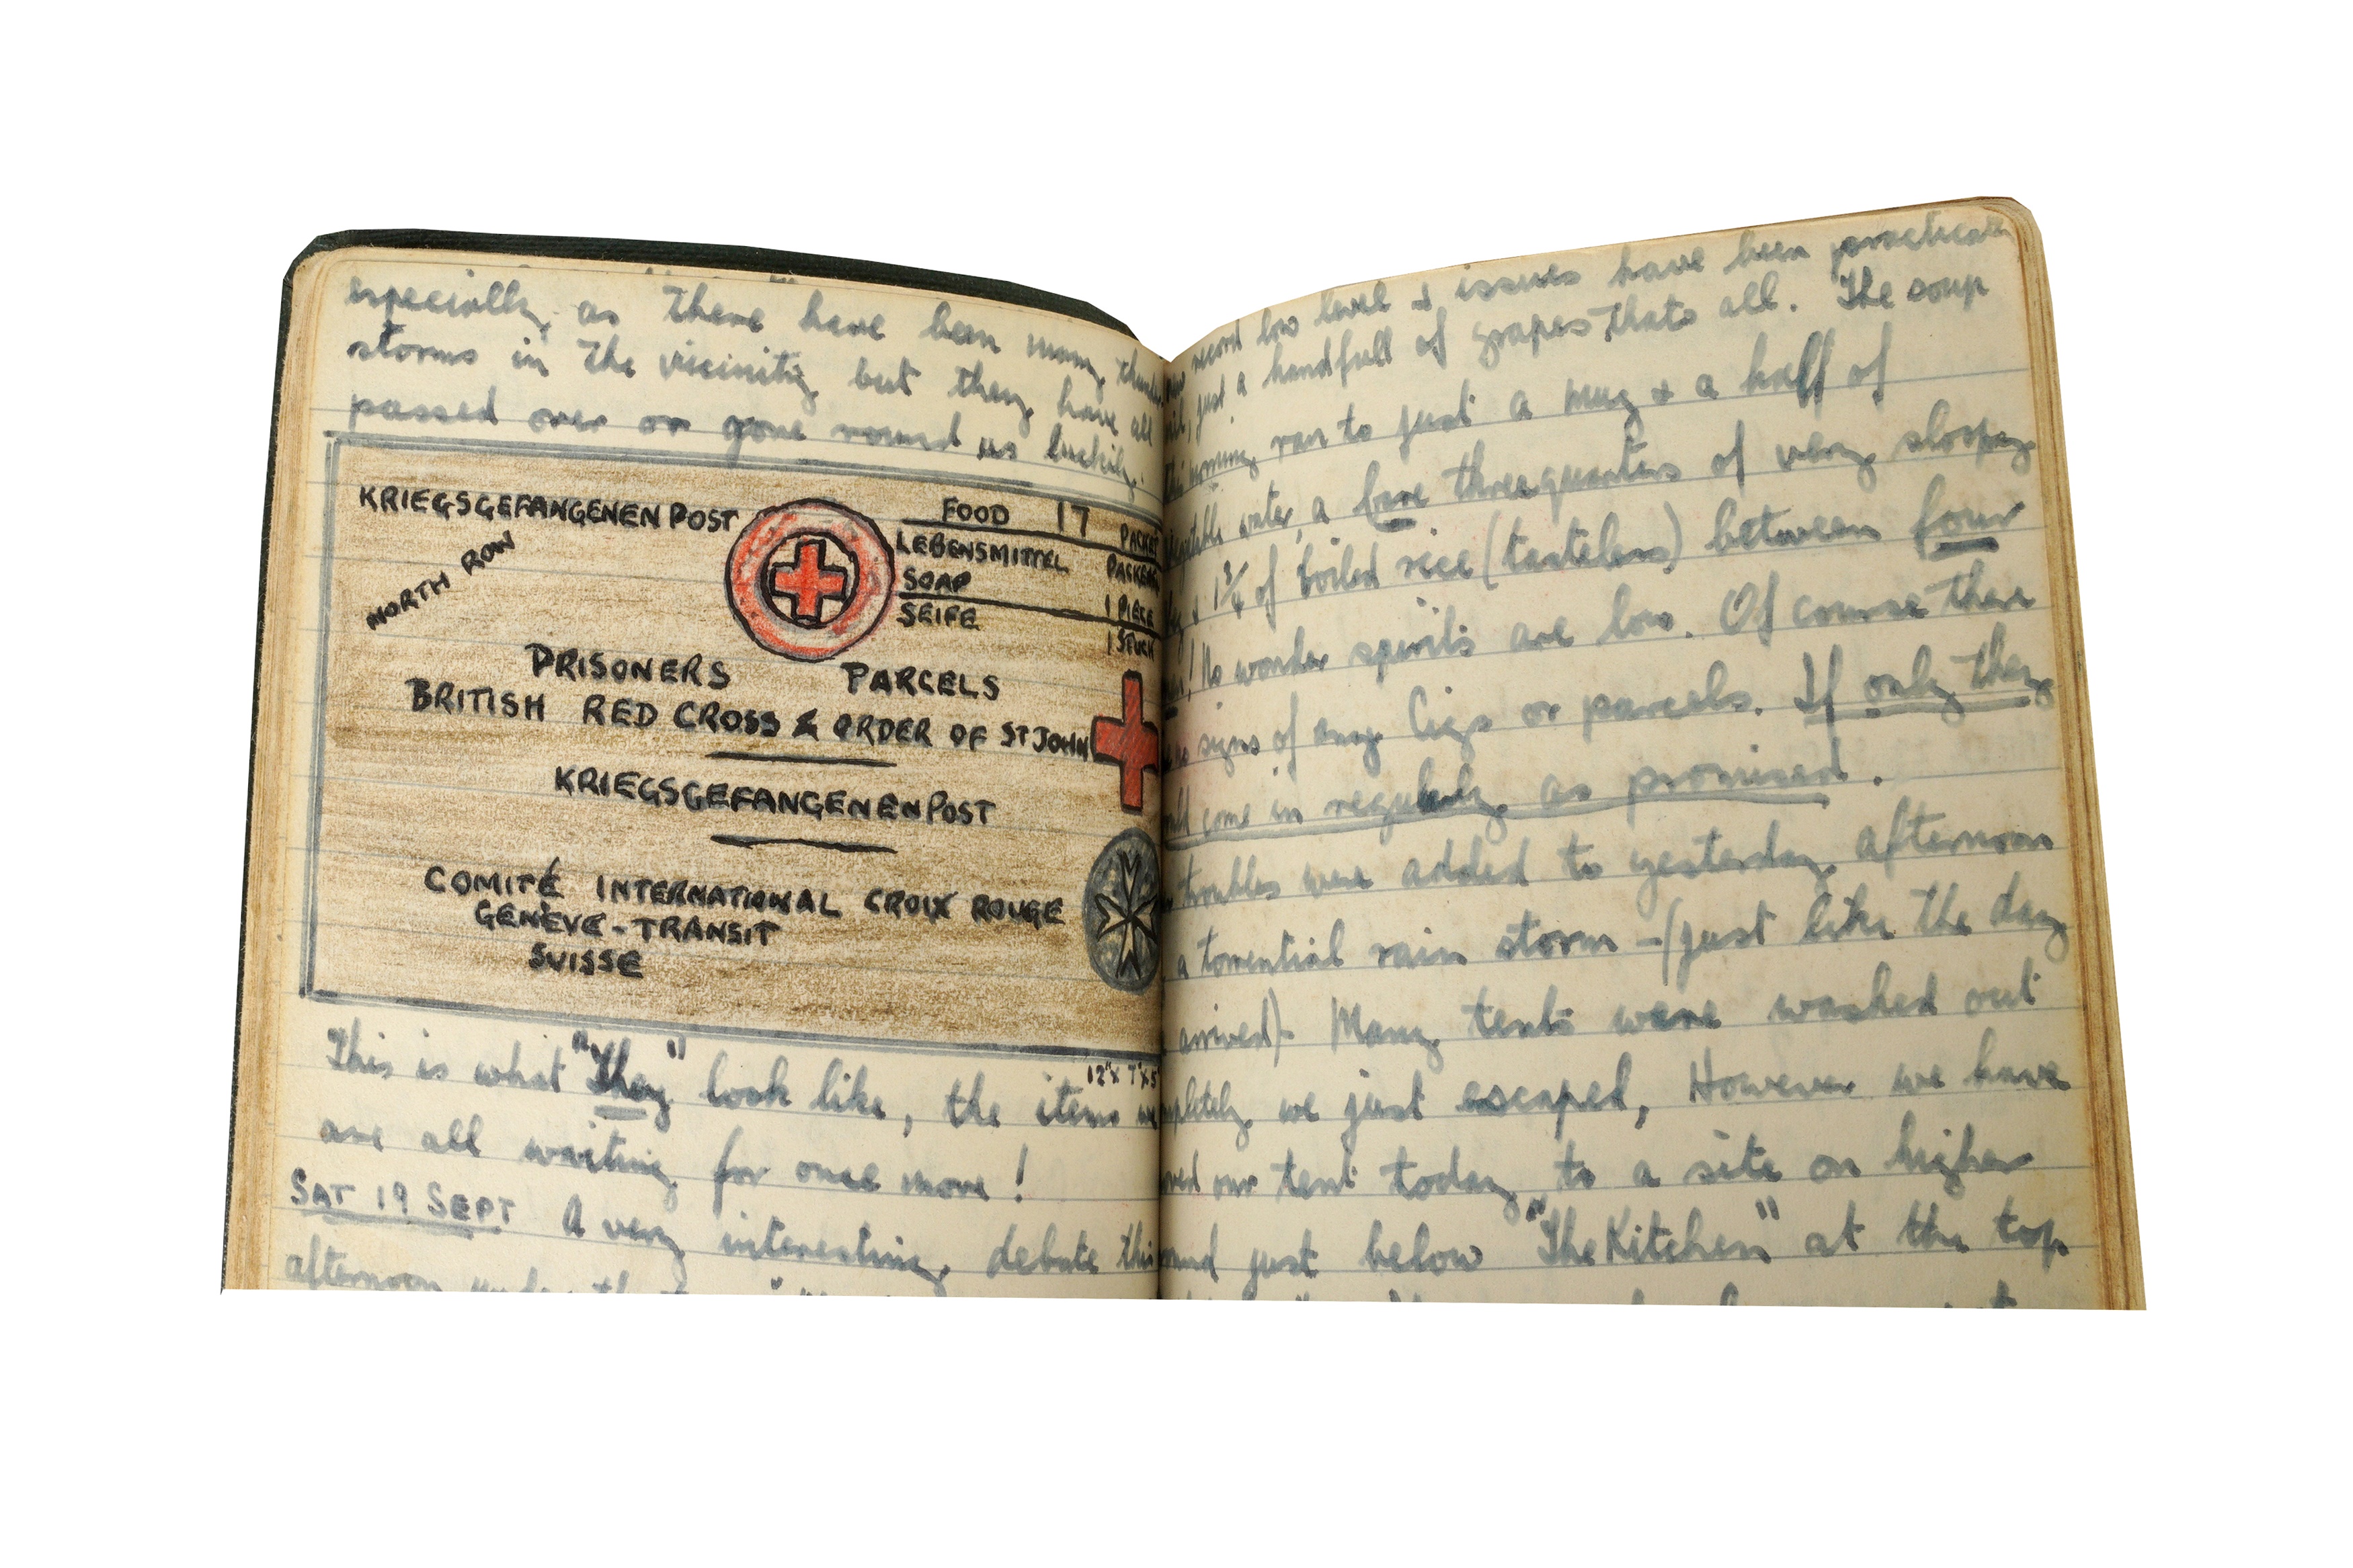 especially as there have been many thunder
storms in the vicinity but they have all
passed over or gone round us luckily.
KRIEGSGEFANGENENPOST
NORTH ROW
FOOD 17 PACKET
LEBENSMITTEL
SOAP 1 PIECE
SEIFE 1 STUCK
PRISONERS PARCELS
BRITISH RED CROSS & ORDER OF ST JOHN
KRIEGSGEFANGENENPOST
COMITÉ INTERNATIONAL CROIX ROUGE
GENÈVE - TRANSIT
SUISSE
12" X 7" X 5
This is what "They" look like, the items we
are all waiting for once more!
SAT 19 SEPT A very interesting debate this
afternoon under the
record low level & issues have been practically
just a handfull of grapes, thats all. The soup
this morning ran to just a mug & a half of
water, a bare threequarters of very sloppy
& 1¾ of boiled rice (tasteless) between four
! No wonder spirits are low. Of course there
no signs of any Cigs or parcels. If only they
come in regularly as promised.
troubles were added to yesterday afternoon
a torrential rain storm - (just like the day
arrived) - Many tents were washed out
we just escaped, However we have
our tent today to a site on higher
just below "The Kitchen" at the top